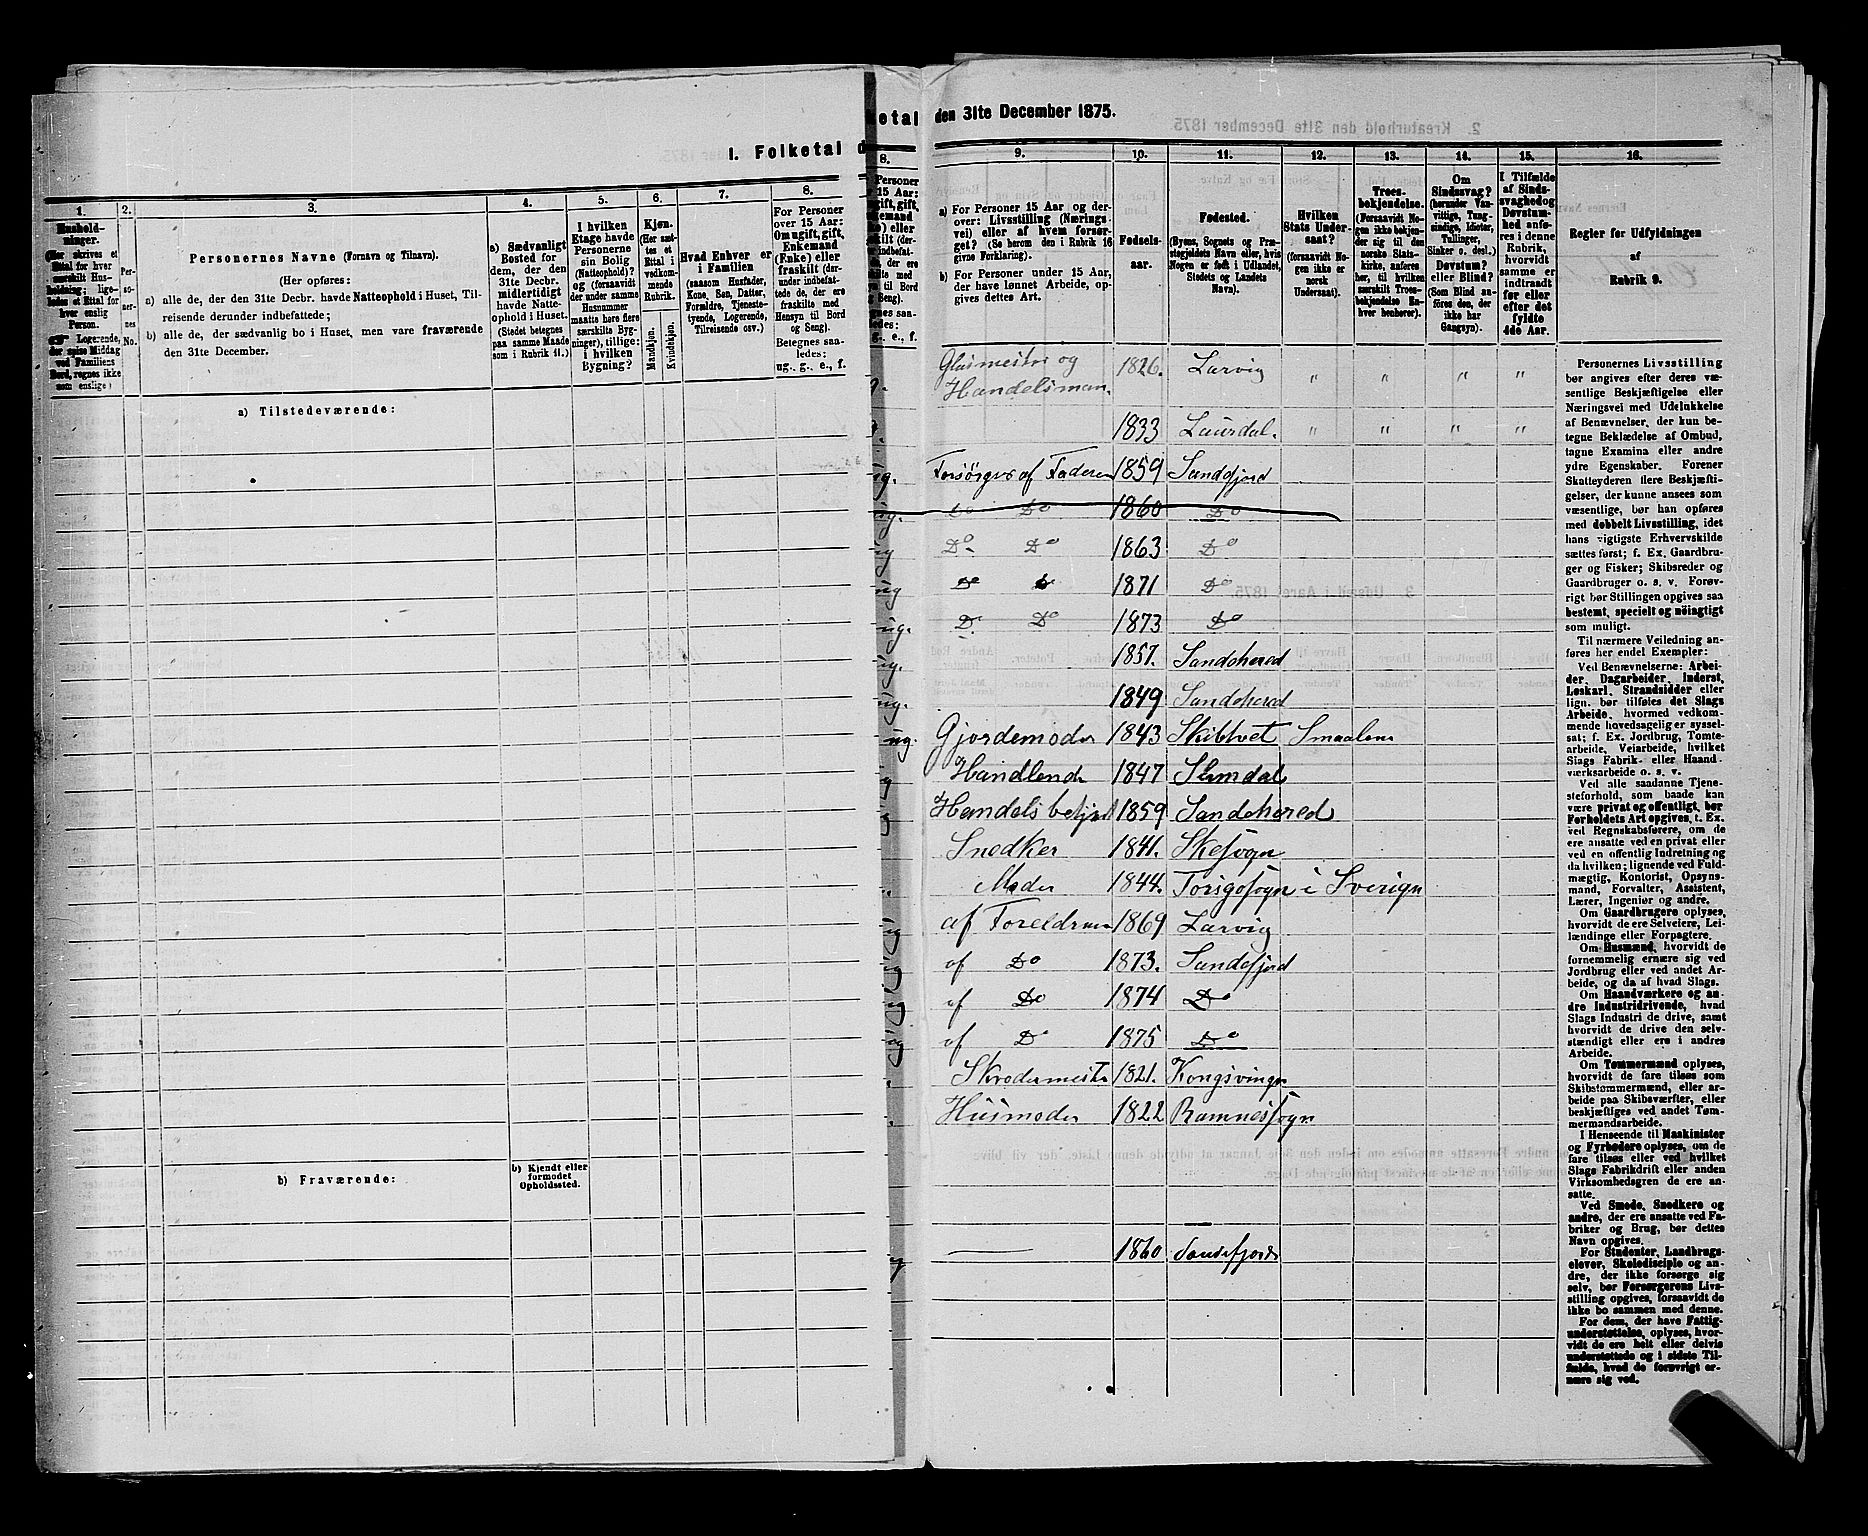 I. Folketal d
1.
Hushold-
ninger.
(Her skrives et
Ettal for hver
særskilt Hus-
holdning; lige-
ledes et Ettal for
hver enslig
Person.
Logerende,
der spise Middag
ved Familiens
Bord, regnes ikke
som enslige)
2.
Per-
so-
ner-
nes
No.
3.
Personernes Navne (Fornavn og Tilnavn).
(Her opføres:
a) alle de, der den 31te Decbr. havde Natteophold i Huset, Til-
reisende derunder indbefattede;
b) alle de, der sædvanlig bo i Huset, men vare fraværende
den 31te December.
4.
a) Sædvanligt
Bosted for
dem, der den
31te Decbr.
midlertidigt
havde Natte-
ophold i Huset.
(Stedet betegnes
paa samme Maade
som i Rubrik 11.)
5.
I hvilken
Etage havde
Personerne
sin Bolig
(Natteophold)?
og (forsaavidt
der under samme
Husnummer
maatte høre flere
særskilte Byg-
ninger), tillige:
i hvilken
Bygning?
6.
Kjøn.
(Her sæt-
tes et
Ettal i
vedkom-
mende
Rubrik.
Mandkjøn.
Kvindekjøn.
7.
Hvad Enhver er
i Familien
(saasom Husfader,
Kone, Søn, Datter,
Forældre, Tjeneste-
tyende, Logerende,
Tilreisende osv.)
8.
For Personer
over 15 Aar:
Om ugift, gift,
Enkemand
(Enke) eller
fraskilt (der-
under indbefat-
tede de, der ere
fraskilte med
Hensyn til Bord
og Seng).
Betegnes saa-
ledes:
ug., g., e., f.
a) Tilstedeværende:
b) Fraværende:
b) Kjendt eller
formodet
Opholdssted.
ketal den 31te December 1875.
8.
9.
a) For Personer 15 Aar og der-
over: Livsstilling (Nærings-
vei) eller af hvem forsør-
get? (Se herom den i Rubrik 16
givne Forklaring).
b) For Personer under 15 Aar,
der have lønnet Arbeide, op-
gives dettes Art.
10.
Fødsels-
aar.
11.
Fødested.
(Byens, Sognets og Præ-
stegjeldets Navn eller, hvis
Nogen er født i Udlandet,
Stedets og Landets
Navn).
12.
Hvilken
Stats Under-
saat?
(forsaavidt No-
gen ikke er
norsk
Undersaat).
13.
Troes-
bekjendelse.
(Forsaavidt No-
gen ikke bekjen-
der sig til den
norske Stats-
kirke, anføres
her, til hvilken
særskilt Troes-
bekjendelse En-
hver henhører).
14.
Om
Sindssvag?
(herunder Van-
vittige, Tung-
sindige, Idioter,
Tullinger,
Sinker o. desl.)
Døvstum?
eller Blind?
(Som Blind an-
føres den, der
ikke har
Gangsyn).
15.
I Tilfælde
af Sinds-
svaghed og
Døvstum-
hed anfø-
res i denne
Rubrik,
hvorvidt
samme er
indtraadt
før eller
efter det
fyldte
4de Aar.
16.
Regler for Udfyldningen
af
Rubrik 9.
Glasmester og 1826. Larvig " " " "
Handelsman.
1833 Laurdal. " " " "
Forsørges af Faderen 1859 Sandefjord
Do Do 1860 Do
Do Do 1863 Do
Do Do 1871 Do
Do Do 1873 Do
1857. Sandehered
1849 Sandehered
Gjordemoder 1843 Skibtvet Smaalene
og Handlende 1847
Handelsbetjent 1859 Sandehered
Snedker 1841. Skesogn
Moder 1844. Torsgosogn i Sverige
af Foreldrene 1869 Larvig
af Do 1873. Sandefjord
af Do 1874 Do
af Do 1875 Do
Skrædermester 1821. Kongsvinger
Husmoder 1822 Ramnessogn
1860 Sandefjord
Personernes Livsstilling
bør angives efter deres væ-
sentlige Beskjæftigelse eller
Næringsvei med Udelukkelse
af Benævnelser, der kun be-
tegne Beklædelse af Ombud,
tagne Examina eller andre
ydre Egenskaber. Forener
Skatteyderen flere Beskjæfti-
gelser, der kunne ansees som
væsentlige, bør han opføres
med dobbelt Livsstilling, idet
hans vigtigste Erhvervskilde
sættes først; f. Ex. Gaardbru-
ger og Fisker; Skibsreder og
Gaardbruger o. s. v. Forøv-
rigt bør Stillingen opgives saa
bestemt, specielt og nöiagtigt
som muligt.
Til nærmere Veiledning an-
føres her endel Exempler:
Ved Benævnelserne: Arbei-
der, Dagarbeider, Inderst,
Løskarl, Strandsidder eller
lign. bør tilføies det Slags
Arbeide, hvormed vedkom-
mende hovedsagelig er syssel-
sat; f. Ex. Jordbrug, Tomte-
arbeide, Veiarbeide, hvilket
Slags Fabrik- eller Haand-
værksarbeide o. s. v.
Ved alle saadanne Tjene-
steforhold, som baade kan
være privat og offentligt, bør
Forholdets Art opgives, t. Ex.
ved Regnskabsførere, om de
ere ansatte ved en privat eller
ved en offentlig Indretning og
da hvilken; lignende ved Fuld-
mægtig, Kontorist, Opsyns-
mand, Forvalter, Assistent,
Lærer, Ingeniør og andre.
Om Gaardbrugere oplyses,
hvorvidt de ere Selveiere, Lei-
lændinge eller Forpagtere.
Om Husmænd, hvorvidt de
fornemmelig ernære sig ved
Jordbrug eller ved andet Ar-
beide, og da af hvad Slags.
Om Haandværkere og an-
dre Industridrivende, hvad
Slags Industri de drive, samt
hvorvidt de drive den selv-
stændigt eller ere i andres
Arbeide.
Om Tømmermænd oplyses,
hvorvidt de fare tilsøs som
Skibstømmermænd, eller ar-
beide paa Skibsværfter, eller
beskjæftiges ved andet Tøm-
mermandsarbeide.
I Henseende til Maskinister
og Fyrbødere oplyses, om de
fare tilsøs eller ved hvilket
Slags Fabrikdrift eller anden
Virksomhedsgren de ere an-
satte.
Ved Smede, Snedkere og
andre, der ere ansatte ved Fa-
briker og Brug, bør dettes
Navn opgives.
For Studenter, Landbrugs-
elever, Skoledisciple og an-
dre, der ikke forsørge sig
selv, bør Forsørgerens Livs-
stilling opgives, forsaavidt de
ikke bo sammen med denne.
For dem, der have Fattig-
understøttelse, oplyses, hvor-
vidt de ere helt eller delvis
understøttede og i sidste Til-
fælde, hvad de forøvrigt er-
nære sig ved.